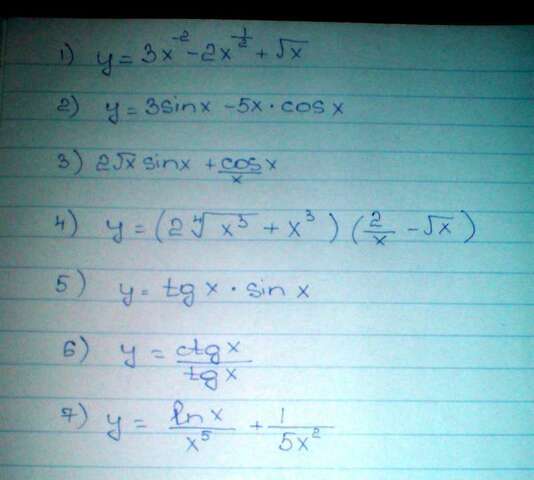 1) y = 3x^-2 - 2x^1/2 + √x
2) y = 3sinx - 5x · cosx
3) 2√x sinx + cosx/x
4) y = (2∜x³ + x³) (2/x - √x)
5) y = tgx · sinx
6) y = ctgx/tgx
7) y = lnx/x⁵ + 1/5x²